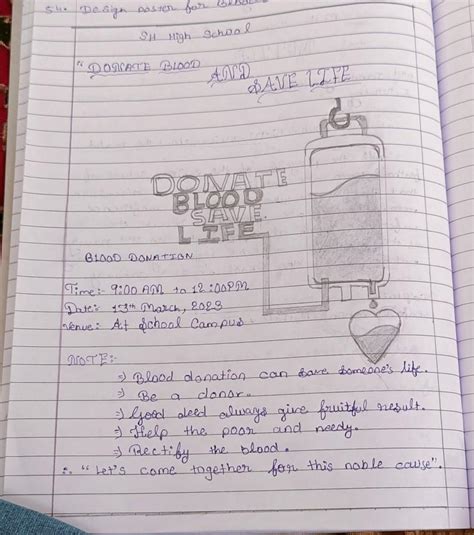 54. Design poster for
SH High School
"DONATE BLOOD
AND
SAVE LIFE
DONATE
BLOOD
SAVE
LIFE
BLOOD DONATION
Time:- 9:00 AM to 12:00PM
Date:- March, 2023
Venue: At School Campus.
NOTE:-
⇒ Blood donation can save someone's life.
⇒ Be a donor.
⇒ Good deed always give fruitful result.
⇒ Help the poor and needy.
⇒ Rectify the blood.
∴ "Let's come together for this noble cause".